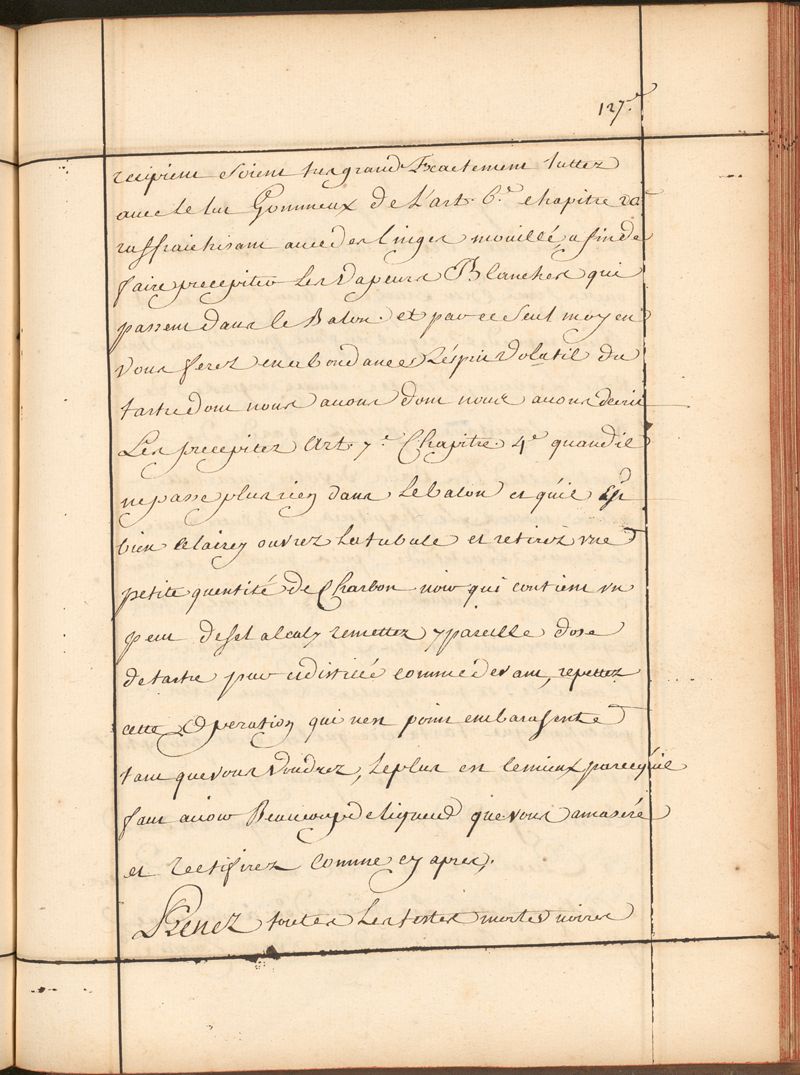 127.e
recipient soient tres grand Exactement luttez
avec le lut Gommeux de L'art. 6.e chapitre
raffraichisant avec des linges mouillé, afin de
faire precepiter Les Vapeurs Blanches qui
passent dans le Balon. et par ce seul moyen
Vous ferez en abondance L'Esprit Volatil du
tartre dont nous avons dont nous avons decrit
Les precepitez Art. 7.e Chapitre. 4.e quand il
ne passe plus rien dans Le balon et qu'il Est
bien Clairey ouvrez La tubule et retirez une
petite quentité de Charbon noir qui contient un
peut de sel alcaly remettez y pareille dose
de tartre par
cette Operation qui n'est point embarasente
tant que vous Voudrez, Le plus est le mieux parcequ'il
faut avoir Beaucoup de liqueur que vous amaseré
et rectifirez Comme cy apres.
Prenez toutes Les testes mortes noires